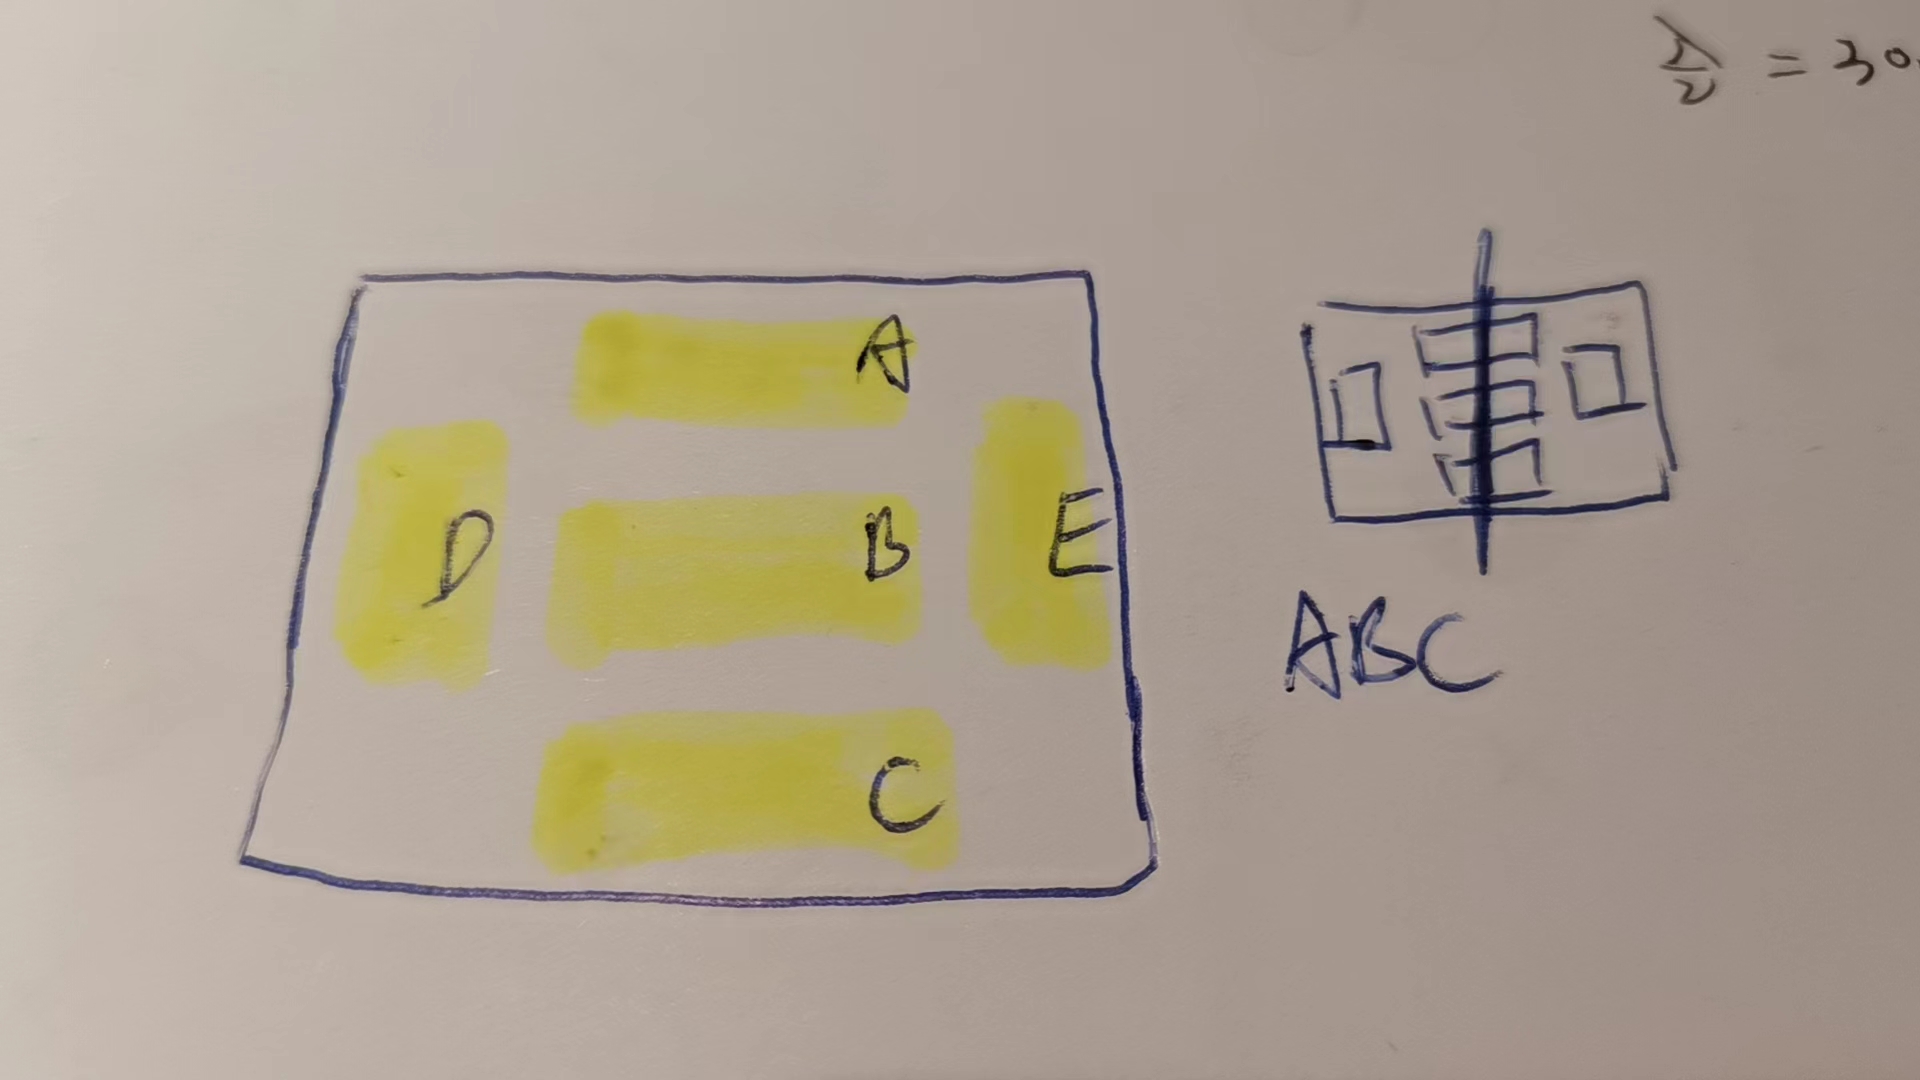 λ/2 = 30.
A
D
B
E
C
ABC